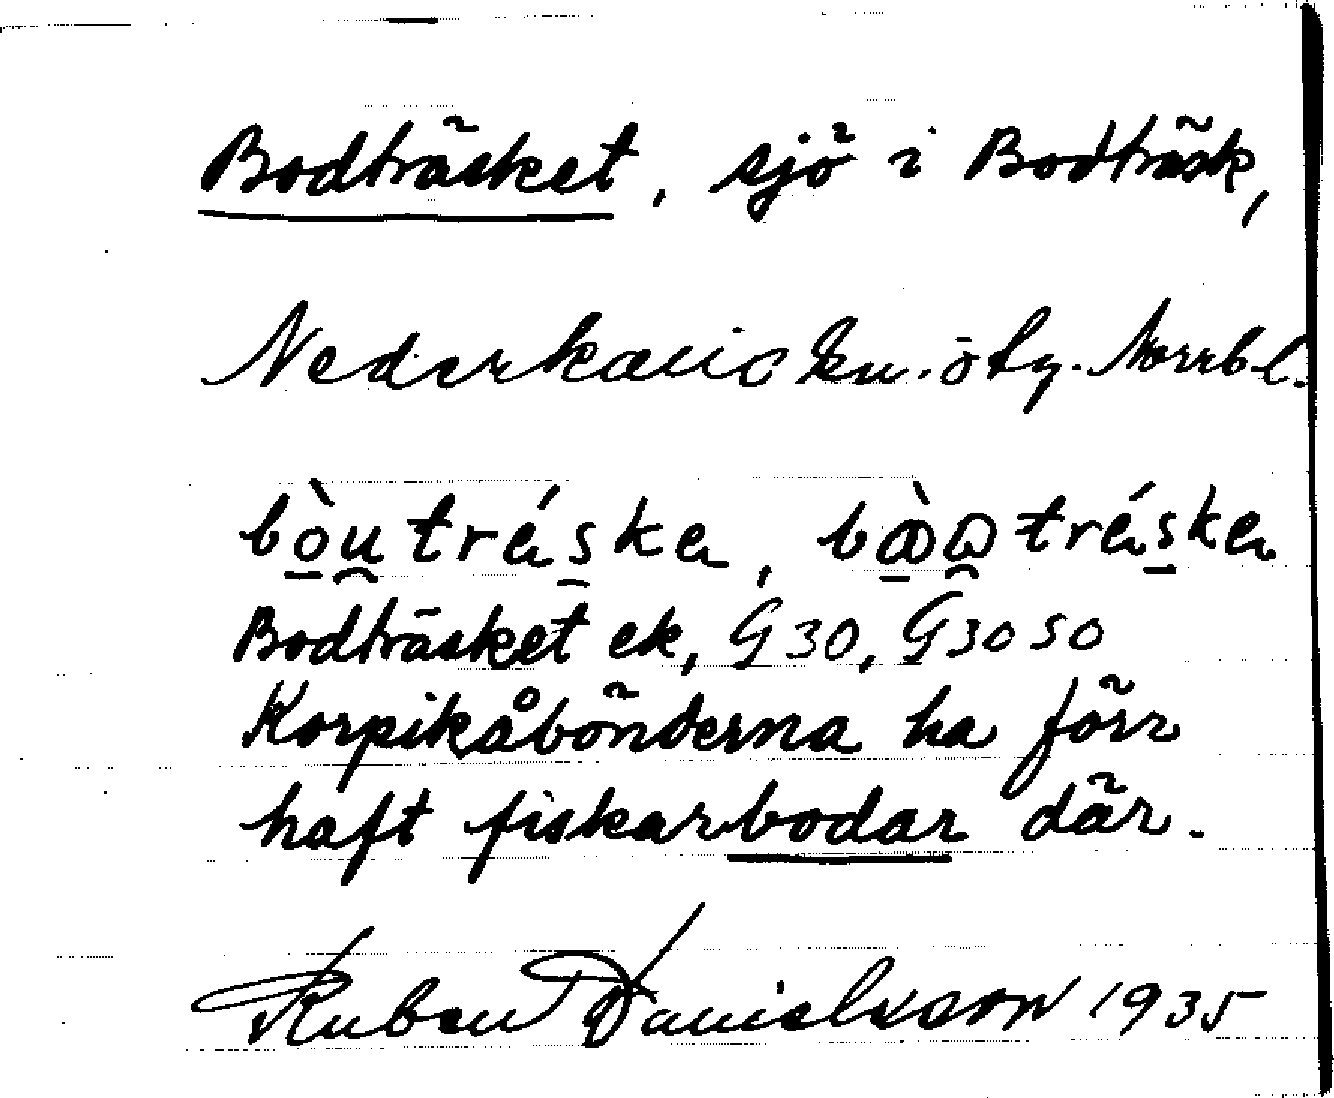 Bodträsket, sjö i Bodträsk,
Nederkalix kn. ö tg. Norrb l.
bòu̯tré̱ske,
Bodträsket ek, G30, G3050
Korpikåbönderna ha förr
haft fiskarbodar där.
Ruben Danielsson 1935